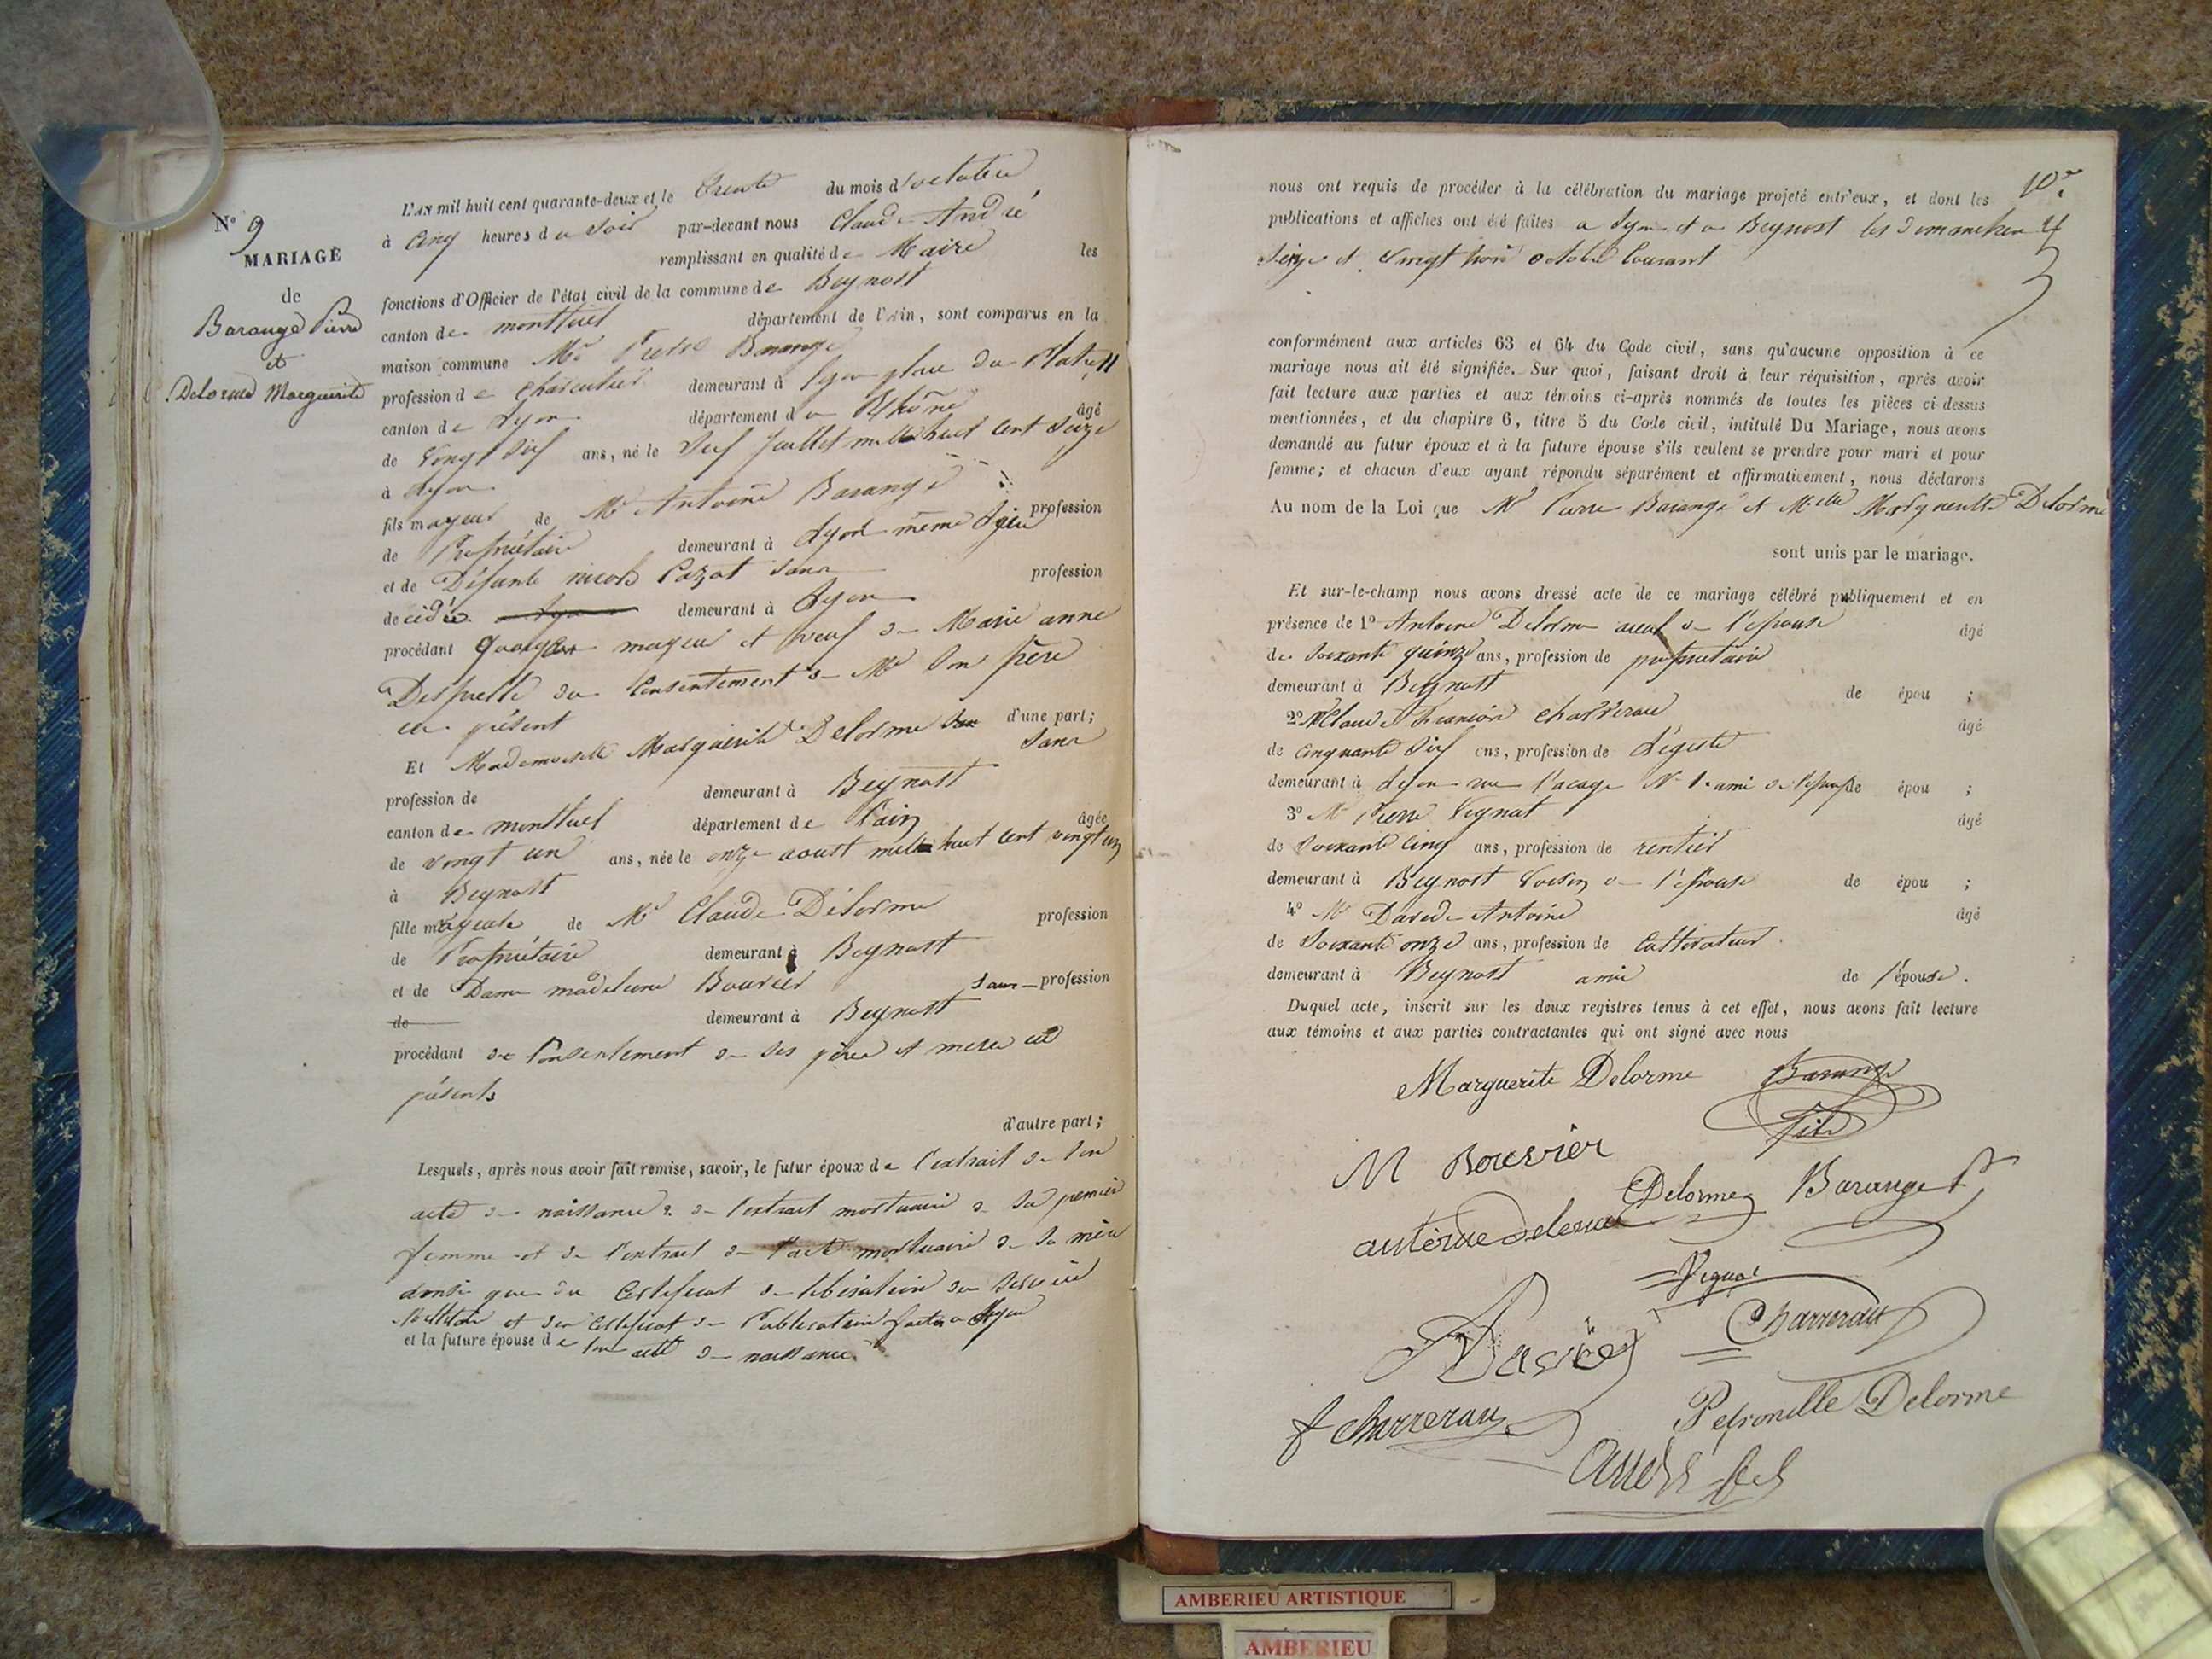 N° 9
MARIAGE
de
Barange Pierre
et
Delorme Marguerite
L'AN mil huit cent quarante-deux et le trente du mois d'octobre
à cinq heures du soir par-devant nous Claude André
remplissant en qualité de Maire les
fonctions d'Officier de l'état civil de la commune de Beynost
canton de montluel département de l'Ain, sont comparus en la
maison commune Mr Pierre Barange
profession de charcutier demeurant à Lyon place du Platre
canton de Lyon département du Rhône âgé
de vingt six ans, né le Six juillet mille huit cent seize
à Lyon
fils majeur de Mr Antoine Barange profession
de Propriétaire demeurant à Lyon même
et de Défunte nicole Cazot sans profession
décédée demeurant à Lyon
procédant quoique majeur et veuf de Marie anne
du consentement de Mr son père
ici présent d'une part;
Et Mademoiselle Marguerite Delorme sans
profession de demeurant à Beynost
canton de montluel département de l'ain âgée
de vingt un ans, née le onze aoust mille huit cent vingt un
à Beynost
fille majeure de Mr Claude Delorme profession
de Propriétaire demeurant à Beynost
et de Dame madeleine Bouvier sans profession
de demeurant à Beynost
procédant de consentement de ses père et mère ici
présents
d'autre part;
Lesquels, après nous avoir fait remise, savoir, le futur époux de l'extrait de son
acte de naissance & de l'extrait mortuaire de sa première
femme et de l'extrait de l'acte mortuaire de sa mère
ainsi que du Certificat de libération du service
militaire et du certificat de Publication faite a Lyon
et la future épouse de son acte de naissance.
10e
nous ont requis de procéder à la célébration du mariage projeté entr'eux, et dont les
publications et affiches ont été faites a Lyon et a Beynost les Dimanches
seize et vingt trois octobre Courant
conformément aux articles 63 et 64 du Code civil, sans qu'aucune opposition à ce
mariage nous ait été signifiée. Sur quoi, faisant droit à leur réquisition, après avoir
fait lecture aux parties et aux témoins ci-après nommés de toutes les pièces ci-dessus
mentionnées, et du chapitre 6, titre 5 du Code civil, intitulé Du Mariage, nous avons
demandé au futur époux et à la future épouse s'ils veulent se prendre pour mari et pour
femme; et chacun d'eux ayant répondu séparément et affirmativement, nous déclarons
Au nom de la Loi que Mr Pierre Barange et Mlle Marguerite Delorme
sont unis par le mariage.
Et sur-le-champ nous avons dressé acte de ce mariage célébré publiquement et en
présence de 1° Antoine Delorme aieul de l'épouse âgé
de soixante quinze ans, profession de propriétaire
demeurant à Beynost de épou ;
2° Claude François Charrerau âgé
de cinquante six ans, profession de Légiste
demeurant à Lyon rue N° 1 ami de l'épouse de épou ;
3° Mr Pierre Vignat âgé
de soixante cinq ans, profession de rentier
demeurant à Beynost voisin de l'épouse de épou ;
4° Mr Antoine âgé
de soixante onze ans, profession de Cultivateur
demeurant à Beynost amie de l'épouse.
Duquel acte, inscrit sur les doux registres tenus à cet effet, nous avons fait lecture
aux témoins et aux parties contractantes qui ont signé avec nous
Marguerite Delorme Barange
fils
M Bouvier
Delorme Barange
antoine delorme
Vignat
Charrerau
f charrerau
Petronille Delorme
AMBERIEU ARTISTIQUE
AMBERIEU